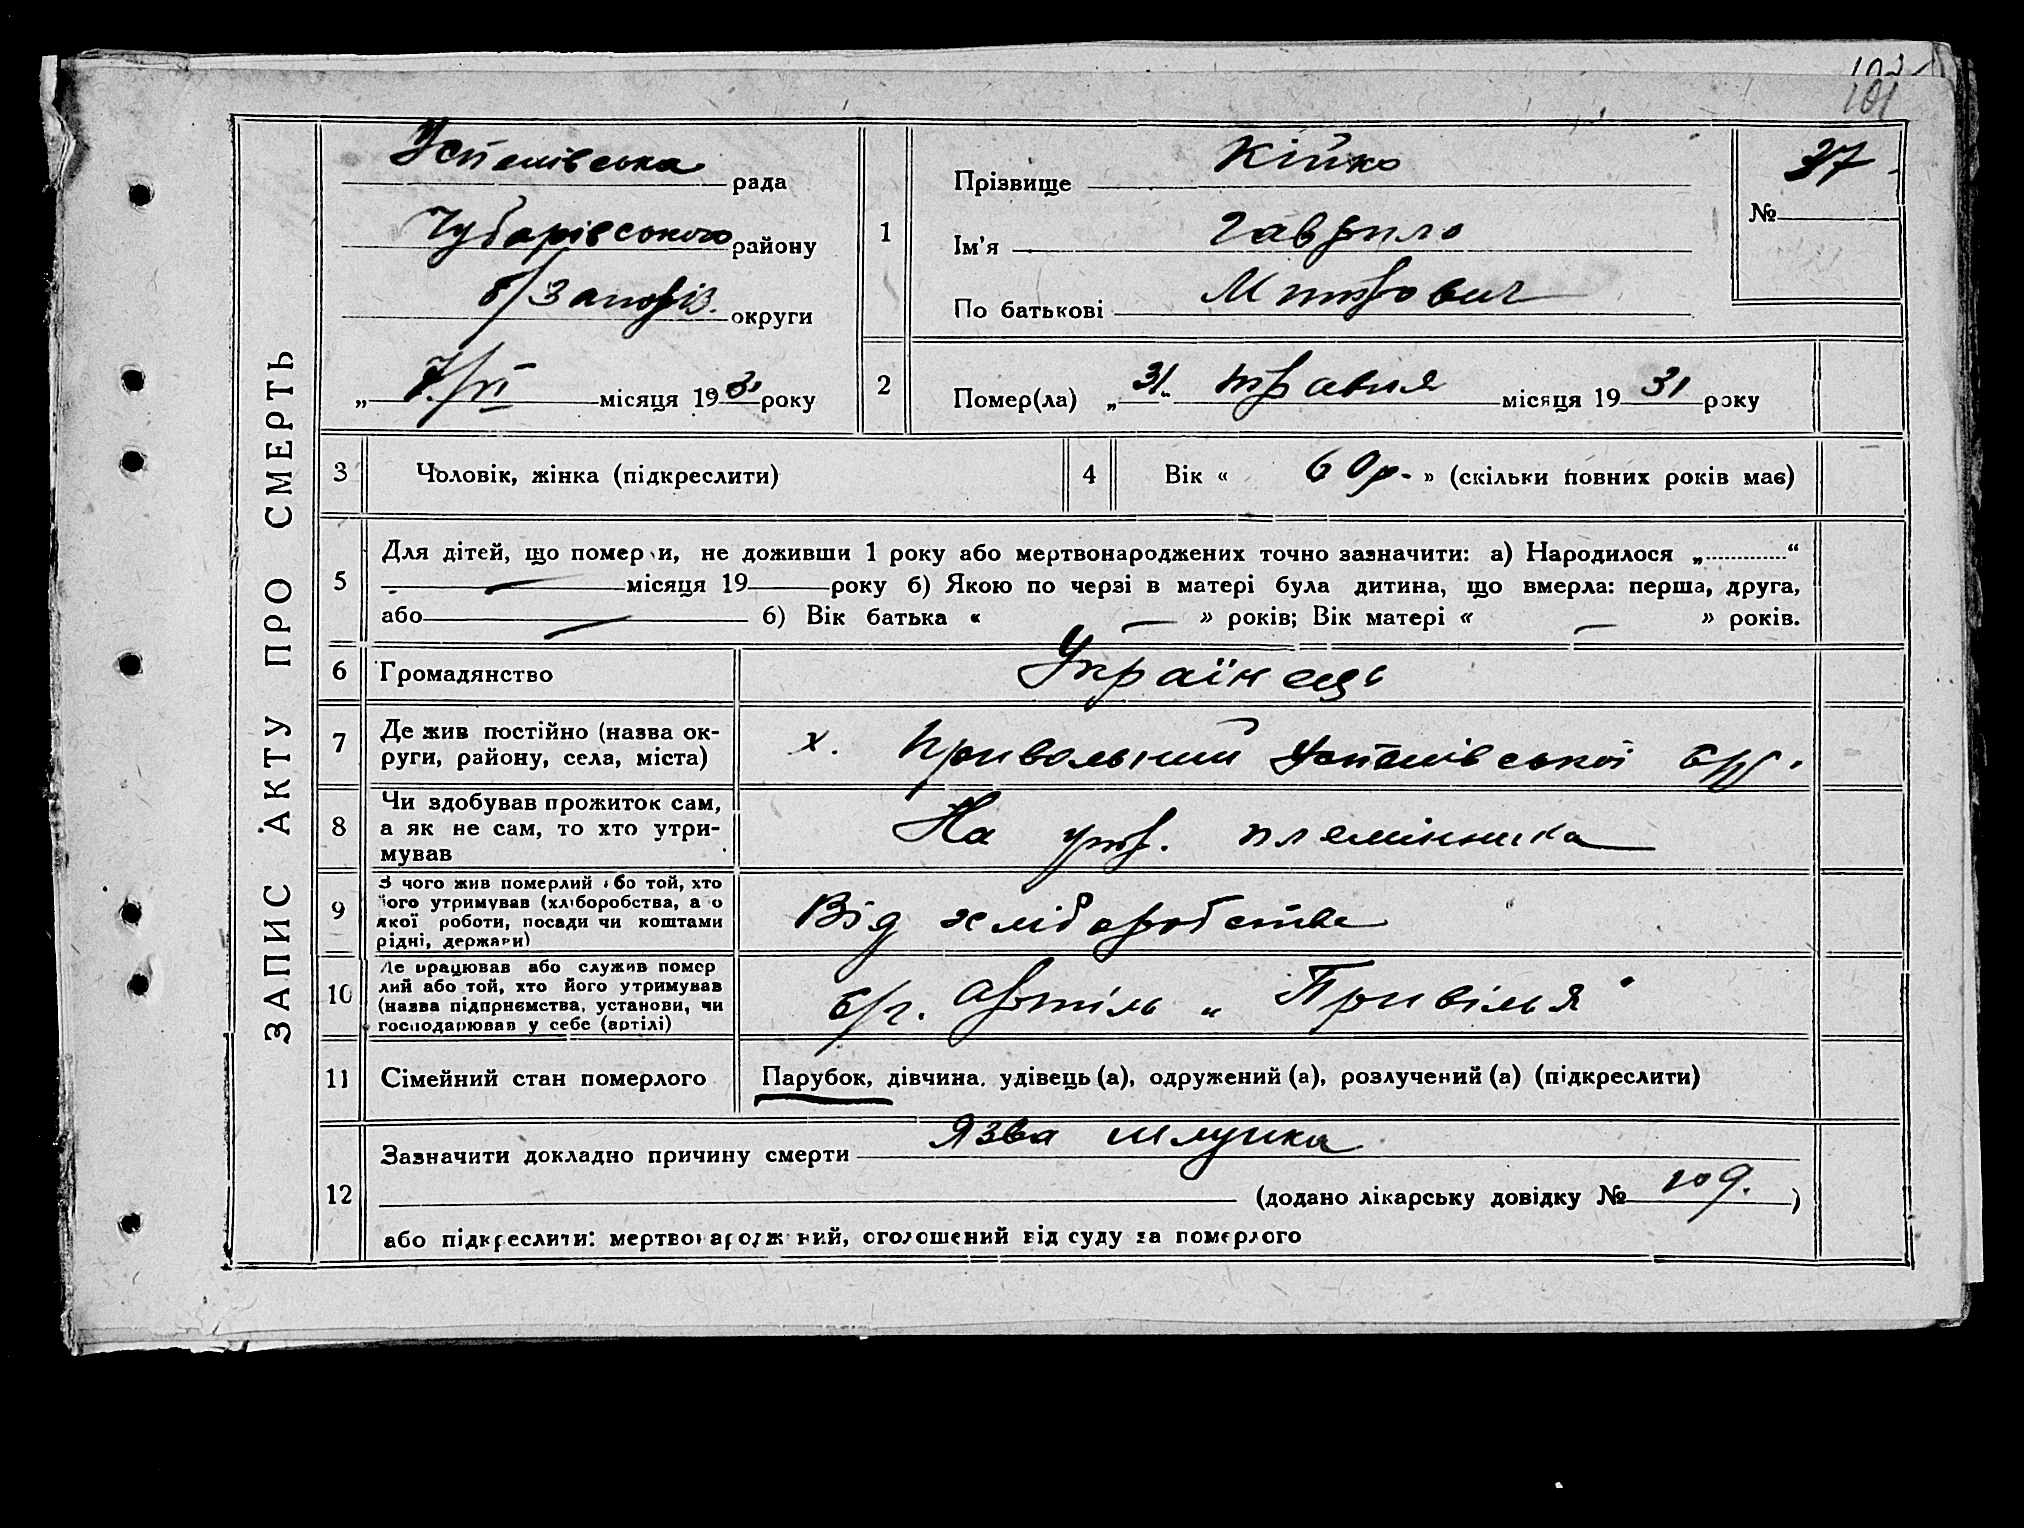 101
ЗАПИС АКТУ ПРО СМЕРТЬ
Успенівська рада
Чубарівського району
б/Запоріз. округи
„ 7/VI місяця 1931 року
1
Прізвище Кійко
Ім'я Гаврило
По батькові Митрович
37
№
2
Помер(ла) „31„ травня місяця 1931 року
3 Чоловік, жінка (підкреслити)
4 Вік « 60р. » (скільки повних років має)
5
Для дітей, що померли, не доживши 1 року або мертвонароджених точно зазначити: а) Народилося „ “
місяця 19 року б) Якою по черзі в матері була дитина, що вмерла: перша, друга,
або б) Вік батька « — » років; Вік матері « — » років.
6 Громадянство Українець
7
Де жив постійно (назва ок-
руги, району, села, міста)
х. Привольний Успенівської с/р.
8
Чи здобував прожиток сам,
а як не сам, то хто утри-
мував
На утр. племінника
9
З чого жив померлий або той, хто
його утримував (хліборобства, а о
якої роботи, посади чи коштами
рідні, держави)
Від хліборобства
10
Де працював або служив помер
лий або той, хто його утримував
(назва підприємства, установи, чи
господарював у себе (артілі)
с/г. Артіль „Привілья"
11 Сімейний стан померлого Парубок, дівчина, удівець (а), одружений (а), розлучений (а) (підкреслити)
12
Зазначити докладно причину смерти Язва шлунка
(додано лікарську довідку № 109. )
або підкреслити: мертвонароджений, оголошений від суду за померлого